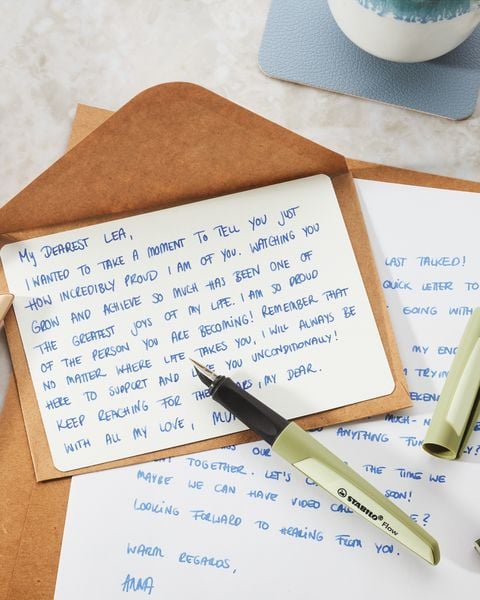 My DEAREST LEA,
I WANTED TO TAKE A MOMENT TO TELL YOU JUST
HOW INCREDIBLY PROUD I AM OF YOU. WATCHING YOU
GROW AND ACHIEVE SO MUCH HAS BEEN ONE OF
THE GREATEST JOYS OF MY LIFE. I AM SO PROUD
OF THE PERSON YOU ARE BECOMING! REMEMBER THAT
NO MATTER WHERE LIFE TAKES YOU, I WILL ALWAYS BE
HERE TO SUPPORT AND YOU UNCONDITIONALLY!
KEEP REACHING FOR THE , MY DEAR.
WITH ALL MY LOVE,
LAST TALKED!
QUICK LETTER TO
GOING WITH
MY
MUCH-
ANYTHING
OUR
TOGETHER. LET'S THE TIME WE
MAYBE WE CAN HAVE VIDEO SOON!
LOOKING FORWARD TO HEARING FROM YOU.
WARM REGARDS,
ANNA
STABILO® Flow